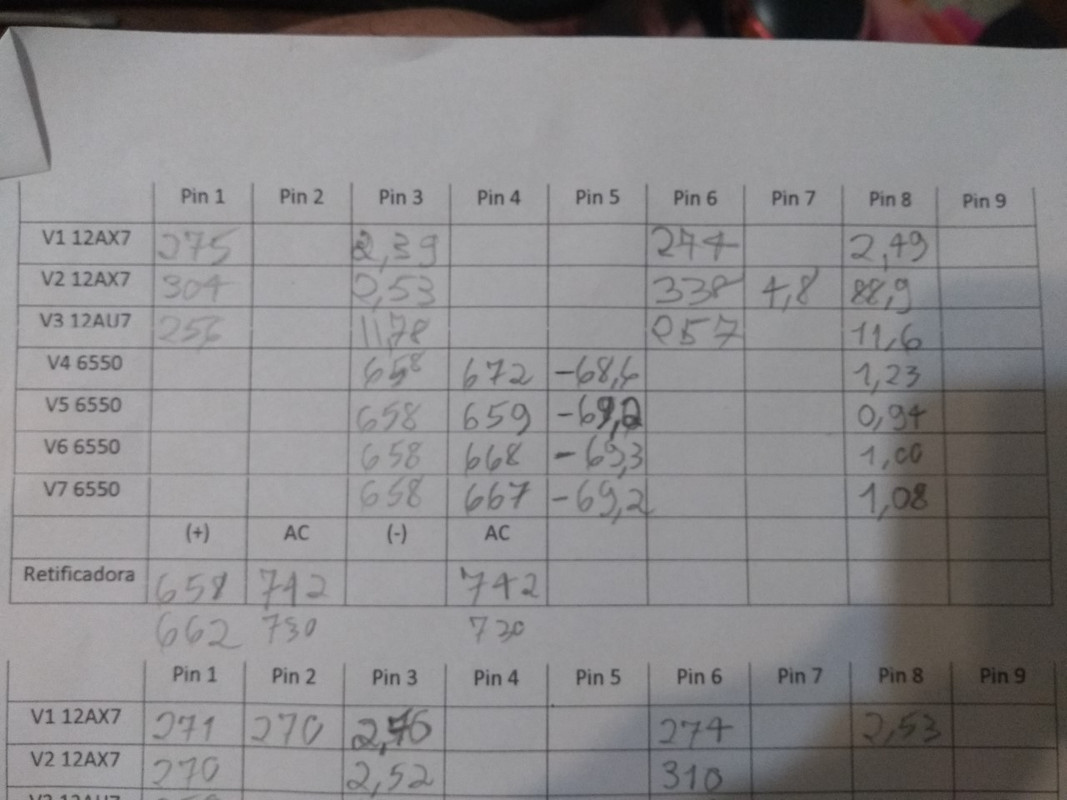 Pin 1 Pin 2 Pin 3 Pin 4 Pin 5 Pin 6 Pin 7 Pin 8 Pin 9
V1 12AX7 275 2,39 274 2,49
V2 12AX7 304 2,53 338 4,8 88,9
V3 12AU7 256 1178 257 11,6
V4 6550 658 672 -68,6 1,23
V5 6550 658 659 -69,2 0,94
V6 6550 658 668 -69,3 1,00
V7 6550 658 667 -69,2 1,08
(+) AC (-) AC
Retificadora 658 742 742
662 730 730
Pin 1 Pin 2 Pin 3 Pin 4 Pin 5 Pin 6 Pin 7 Pin 8 Pin 9
V1 12AX7 271 270 274 2,53
V2 12AX7 270 2,52 310